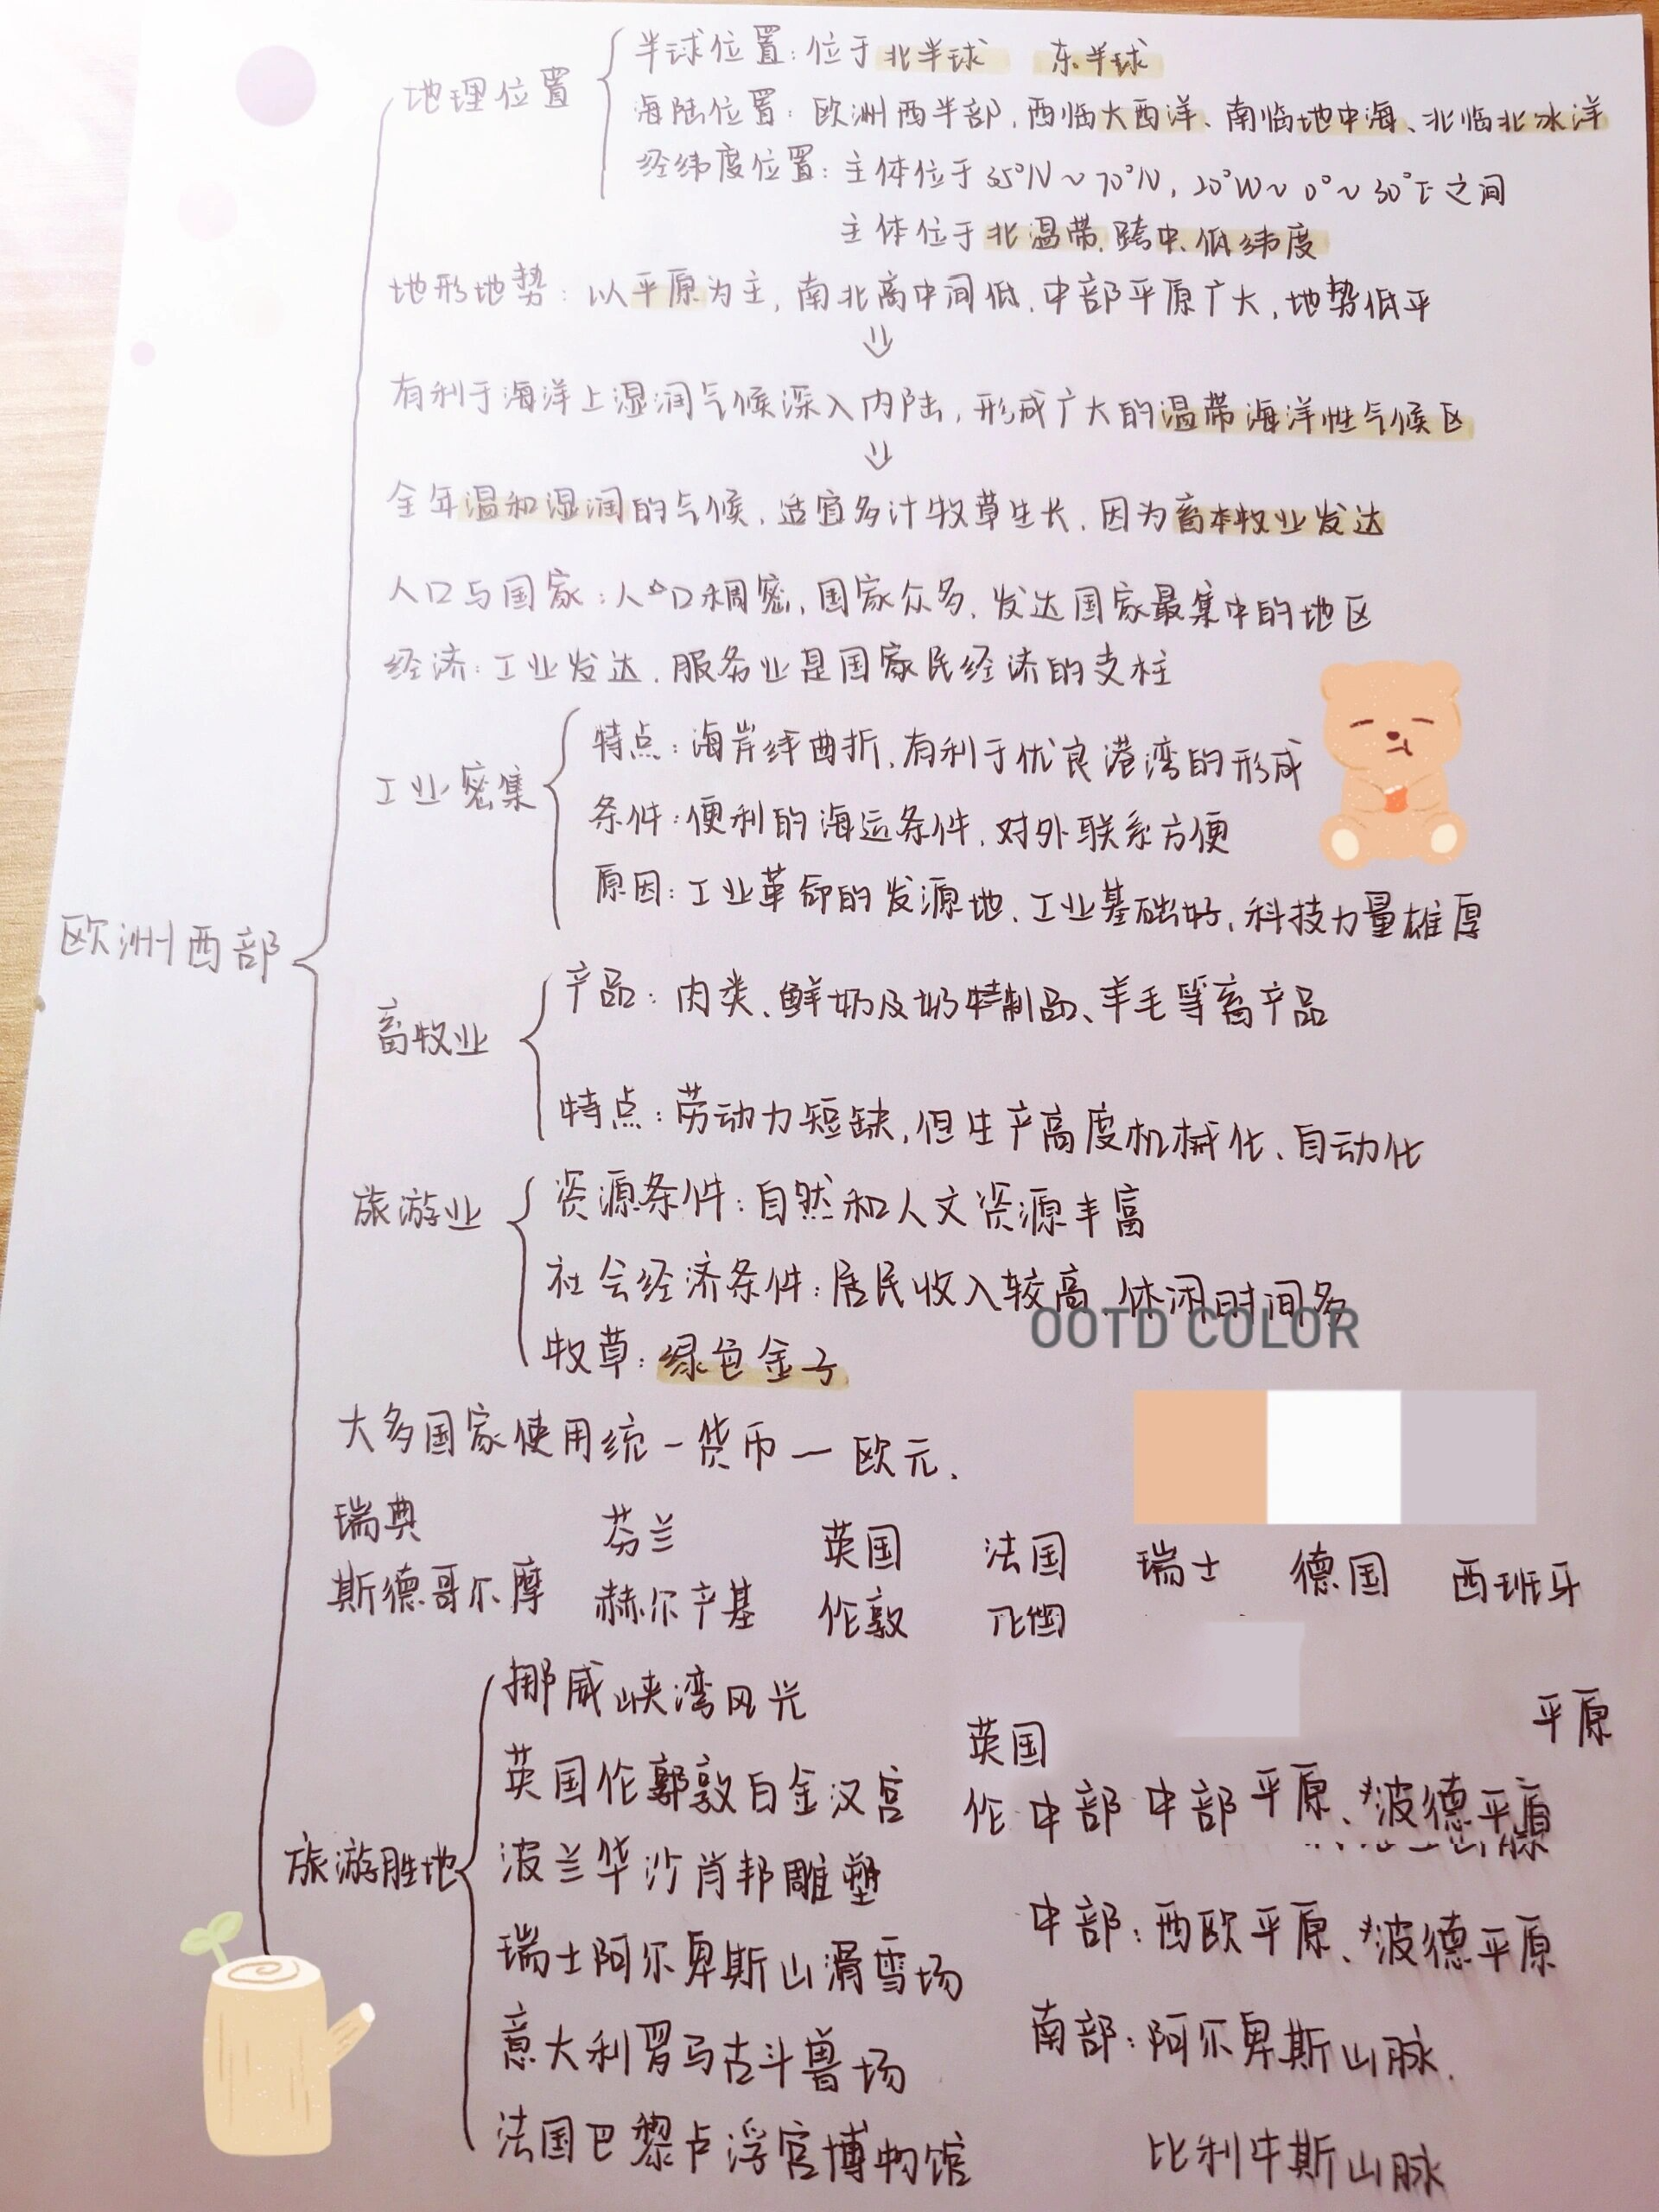 地理位置
半球位置：位于北半球 东半球
海陆位置：欧洲西半部，西临大西洋、南临地中海、北临北冰洋
经纬度位置：主体位于35°N~70°N，20°W~0°~30°E之间
主体位于北温带，跨中、低纬度
地形地势：以平原为主，南北高中间低，中部平原广大，地势低平
有利于海洋上湿润气候深入内陆，形成广大的温带海洋性气候区
全年温和湿润的气候，适宜多汁牧草生长，因为畜本牧业发达
人口与国家：人口稠密，国家众多，发达国家最集中的地区
经济：工业发达，服务业是国家民经济的支柱
工业密集
特点：海岸线曲折，有利于优良港湾的形成
条件：便利的海运条件，对外联系方便
原因：工业革命的发源地、工业基础好，科技力量雄厚
欧洲西部
畜牧业
产品：肉类、鲜奶及奶特制品、羊毛等畜产品
特点：劳动力短缺，但生产高度机械化、自动化
旅游业
资源条件：自然和人文资源丰富
社会经济条件：居民收入较高，休闲时间多
OOTD COLOR
牧草：绿色金子
大多国家使用统一货币—欧元.
瑞典 芬兰 英国 法国 瑞士 德国 西班牙
斯德哥尔摩 赫尔辛基 伦敦
旅游胜地
挪威峡湾风光
英国伦郭敦白金汉宫
波兰华沙肖邦雕塑
瑞士阿尔卑斯山滑雪场
意大利罗马古斗兽场
法国巴黎卢浮宫博物馆
英国 平原
伦 中部 中部 平原、波德平原
中部：西欧平原、波德平原
南部：阿尔卑斯山脉.
比利牛斯山脉